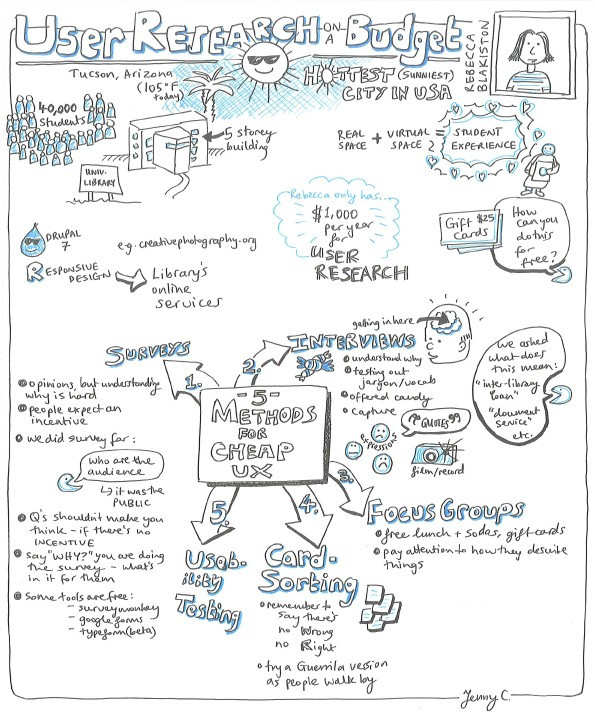 User Research ON A Budget
REBECCA BLAKISTON
Tucson, Arizona
(105°F today)
HOTTEST (SUNNIEST)
CITY IN USA
40,000
Students
5 storey
building
UNIV.
LIBRARY
REAL SPACE + VIRTUAL SPACE = STUDENT EXPERIENCE
Rebecca only has...
$1,000
per year
for
USER
RESEARCH
Gift $25
Cards
How
can you
do this
for
free?
DRUPAL
7
e.g. creativephotography.org
RESPONSIVE
DESIGN
Library's
online
services
-5-
METHODS
FOR
CHEAP
UX
1.
SURVEYS
opinions, but understanding
why is hard
people expect an
incentive
we did survey for:
who are the
audience
it was the
PUBLIC
Q's shouldn't make you
think - if there's no
INCENTIVE
say "WHY?" you are doing
the survey - what's
in it for them
Some tools are free:
- surveymonkey
- google forms
- typeform (beta)
2.
INTERVIEWS
getting in here
understand why
testing out
jargon/vocab
offered candy
capture
"QUOTES"
expressions
film/record
we asked
what does
this mean:
"inter-library
loan"
"document
service"
etc.
3.
FOCUS GROUPS
free lunch + sodas, gift cards
pay attention to how they describe
things
4.
Card-
Sorting
remember to
say there's
no Wrong
no Right
try a Guerrilla version
as people walk by
5.
Usab-
ility
Testing
Jenny C.